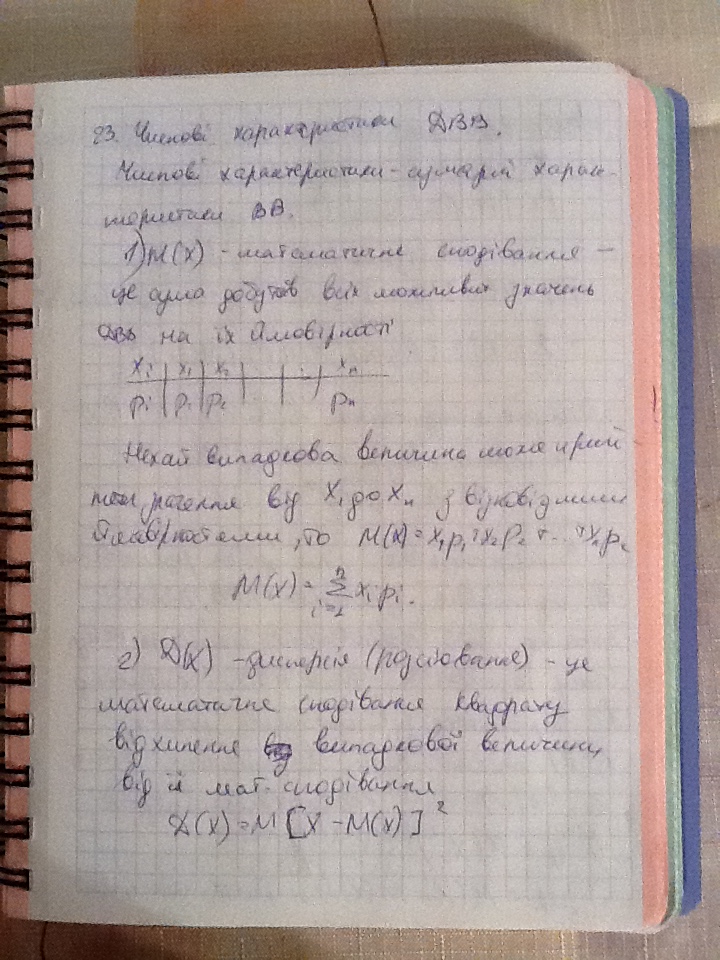 23. Числові характеристики ДВВ.
Числові характеристики - сумарні харак-
теристики ВВ.
1) M(X) - математичне сподівання -
це сума добутків всіх можливих значень
ДВВ на їх ймовірності
xi | x1 | x2 | | ... | xn
pi | p1 | p2 | | | pn
Нехай випадкова величина може прий
мати значення від x1 до xn з відповідними
ймовірностями, то M(X) = x1p1 + x2p2 + ... + xnpn
M(X) = n∑i=1 xi pi.
2) D(X) - дисперсія (розсіювання) - це
математичне сподівання квадрату
відхилення випадкової величини
від її мат. сподівання
D(X) = M[X - M(X)]²